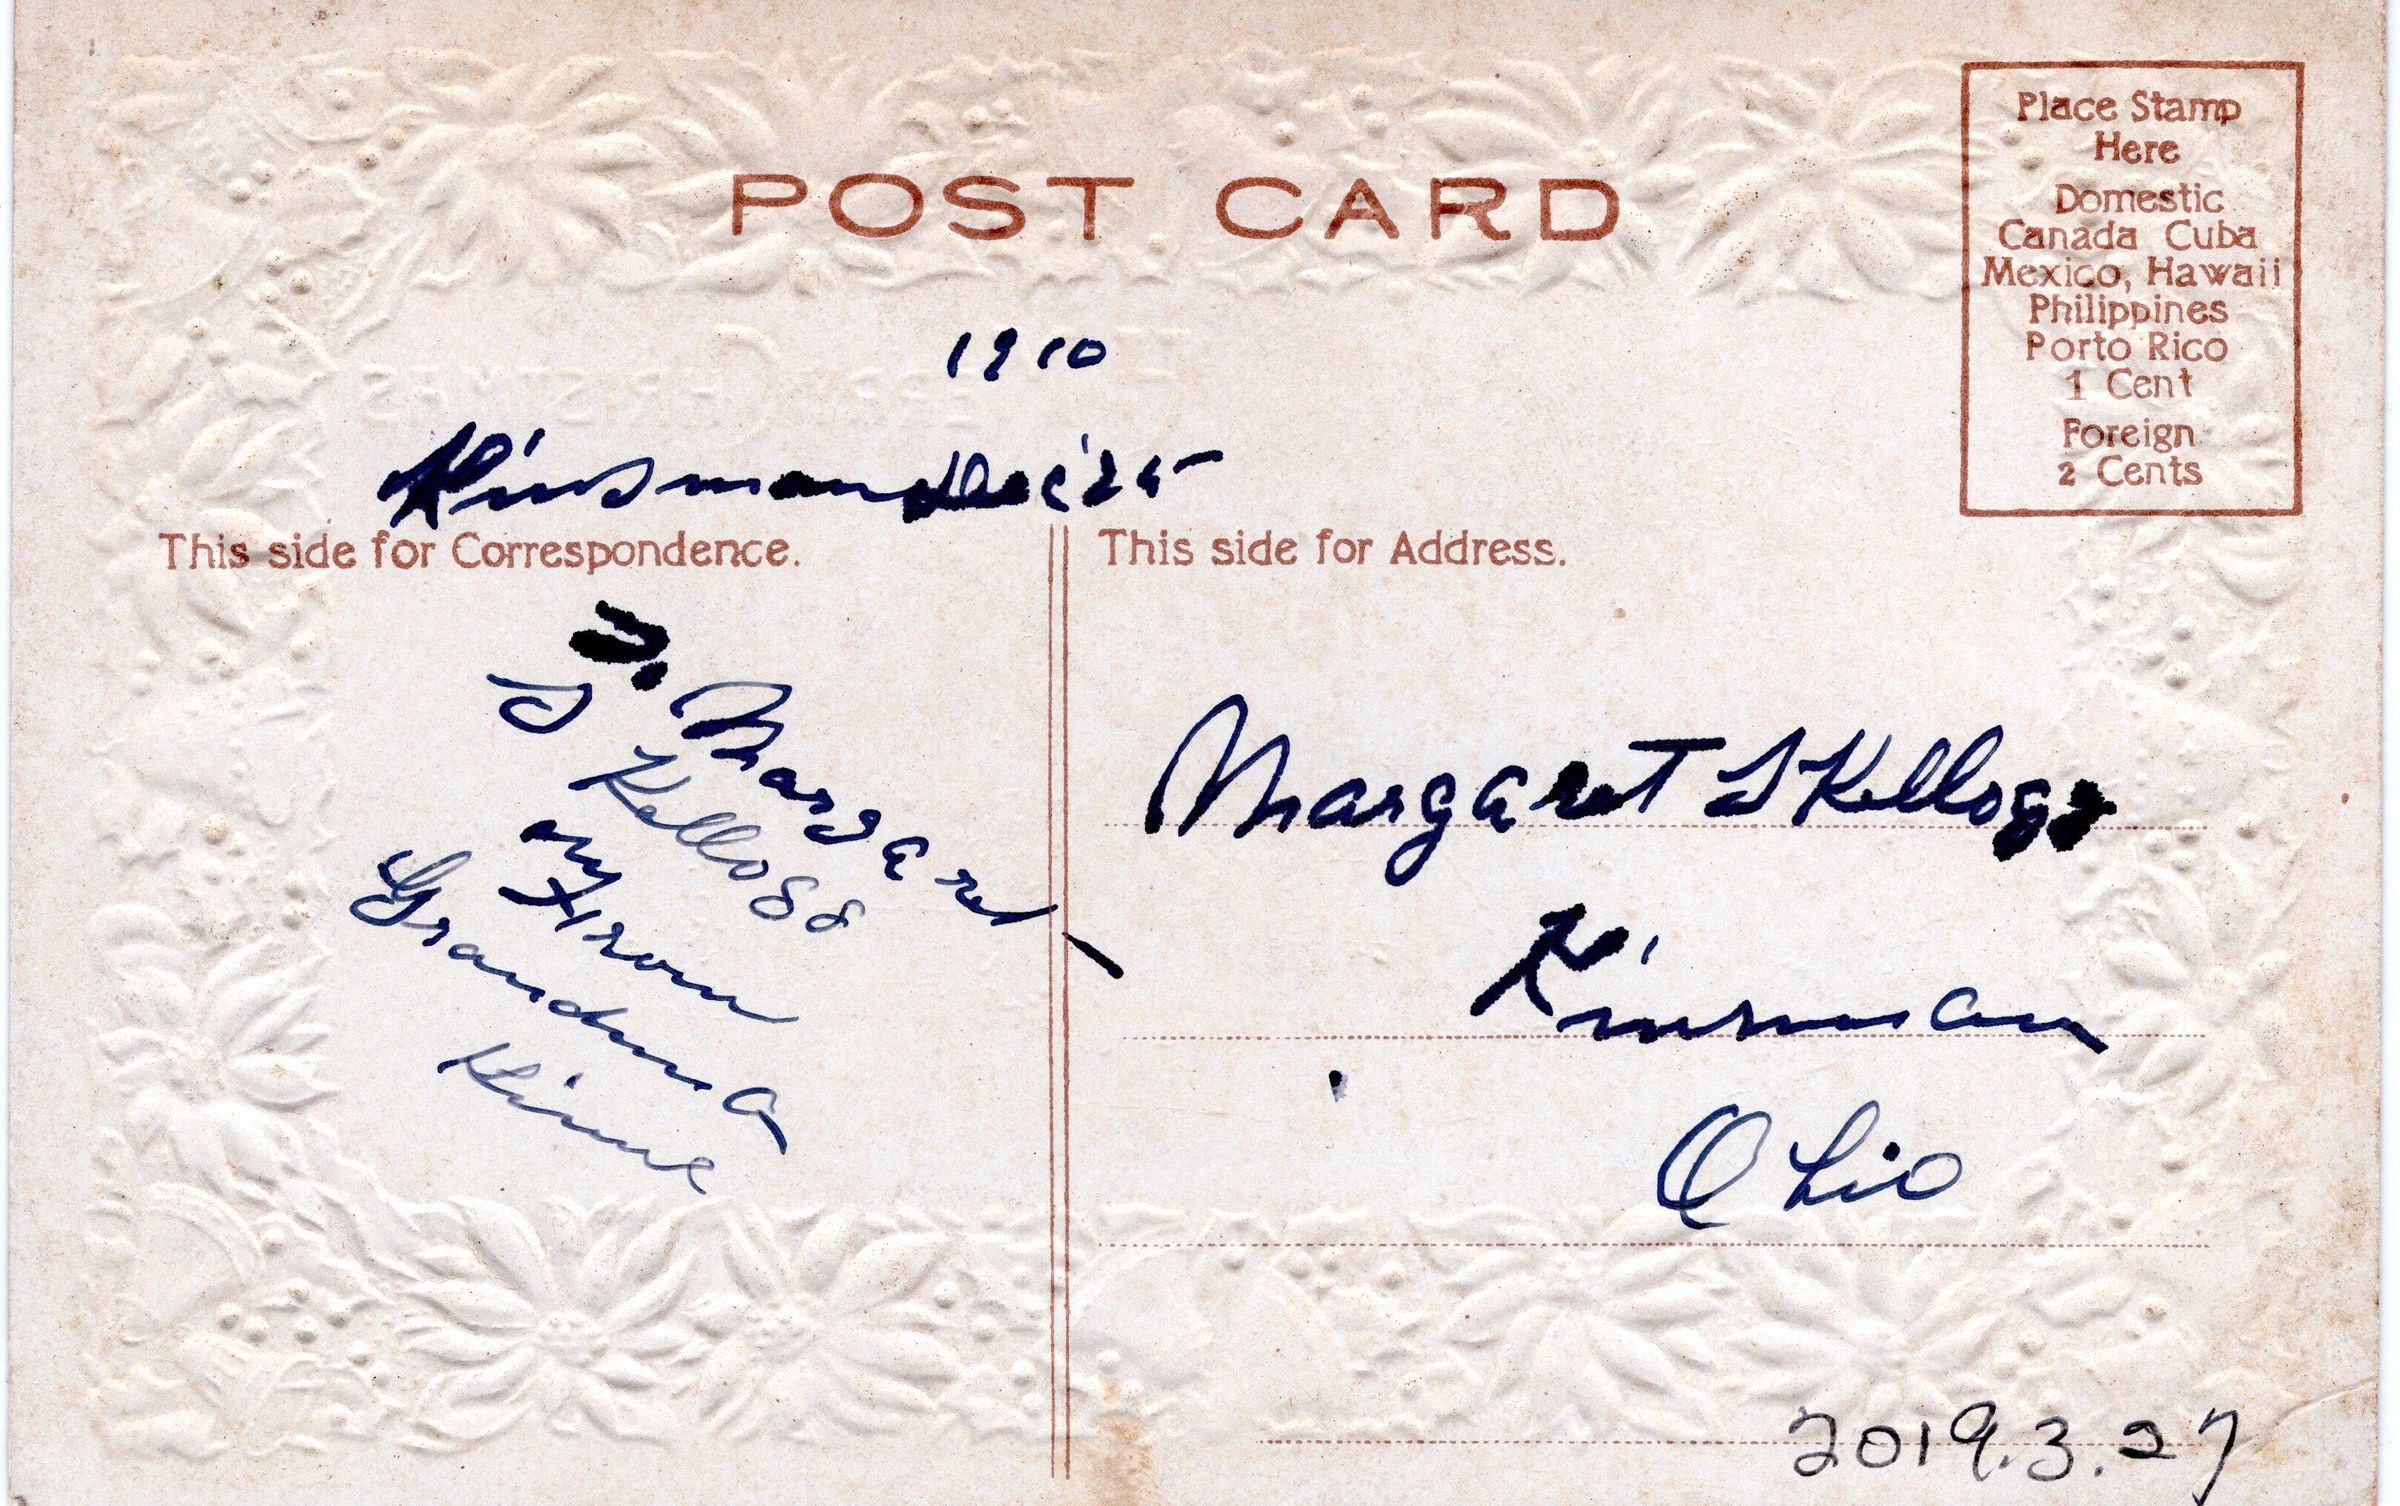 POST CARD
Place Stamp
Here
Domestic
Canada Cuba
Mexico, Hawaii
Philippines
Porto Rico
1 Cent
Foreign
2 Cents
1910
Kinsman Dec '25
This side for Correspondence.
This side for Address.
To Margaret
S Kellogg
From
Grandma
Kinne
Margaret S Kellogg
Kinsman
Ohio
2019.3.27